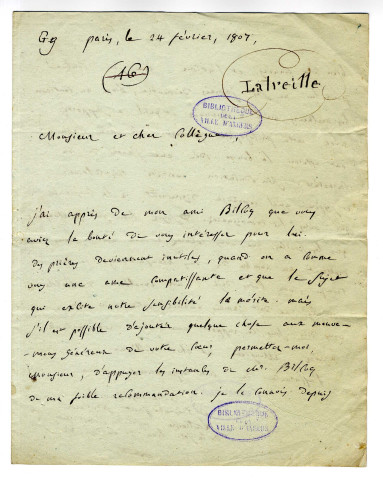 Gg paris, le 24 février, 1807,
(46)
Latreille
BIBLIOTHEQUE
DE LA
VILLE D'ANGERS
Monsieur et cher Collègue,
j'ai appris de mon ami Bilcoq que vous
aviez la bonté de vous intéresser pour lui.
des prières deviennent inutiles, quand on a comme
vous une ame compatissante et que le sujet
qui excite notre sensibilité la mérite. mais
s'il est possible d'ajouter quelque chose aux mouve-
-mens généreux de votre cœur, permettez-moi,
Monsieur, d'appuyer les instantes de Mr. Bilcoq
de ma foible recommandation. je le connois depuis
BIBLIOTHEQUE
DE LA
VILLE D'ANGERS